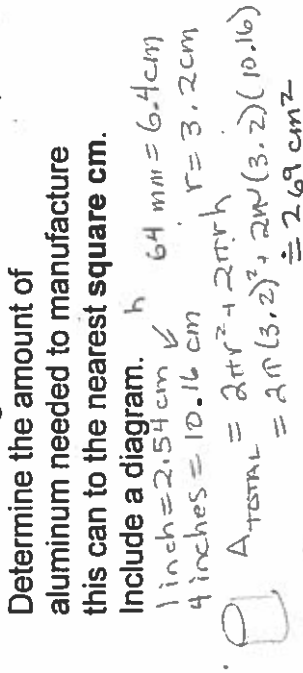 Determine the amount of
aluminum needed to manufacture
this can to the nearest square cm.
Include a diagram. h
1 inch = 2.54 cm ↙ 64 mm = 6.4 cm
4 inches = 10.16 cm r = 3.2 cm
A TOTAL = 2πr² + 2πrh
= 2π(3.2)² + 2π(3.2)(10.16)
≐ 269 cm²